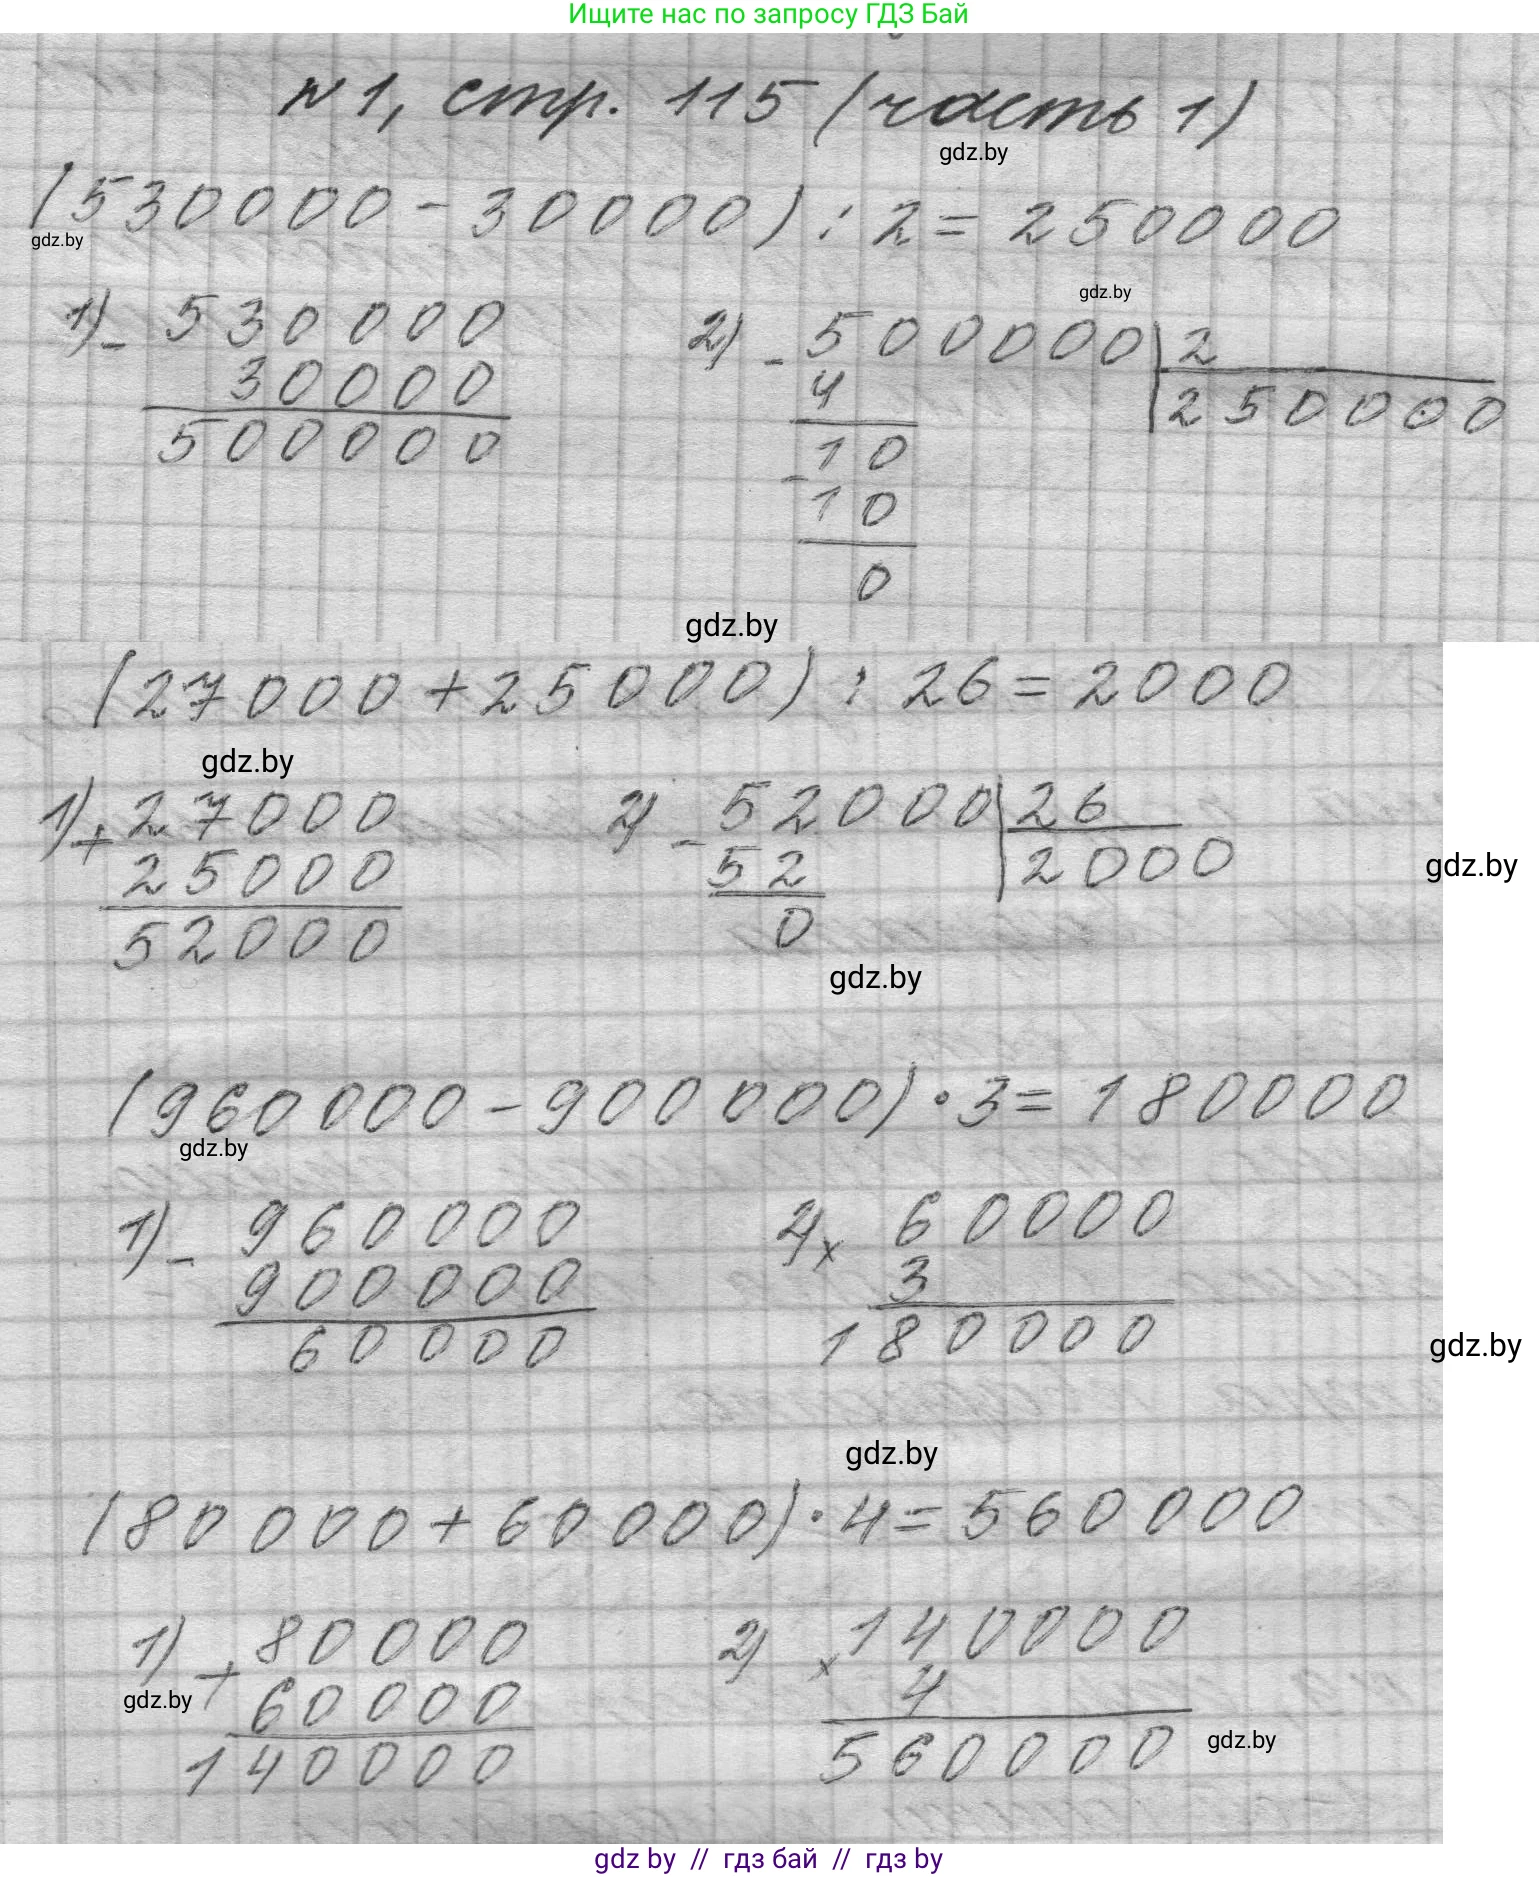 Ищите нас по запросу ГДЗ Бай
№1, стр. 115 (часть 1)
gdz.by
(530000-30000):2=250000
gdz.by
gdz.by
1) - 530000
30000
500000
2) - 500000 | 2
4 250000
10
- 10
0
gdz.by
(27000+25000):26=2000
gdz.by
1) + 27000
25000
52000
2) - 52000 | 26
52 2000
0
gdz.by
gdz.by
(960000-900000)·3=180000
gdz.by
1) - 960000
900000
60000
2) x 60000
3
180000
gdz.by
gdz.by
(80000+60000)·4=560000
1) + 80000
60000
140000
gdz.by
2) x 140000
4
560000
gdz.by
gdz by // гдз бай // гдз by